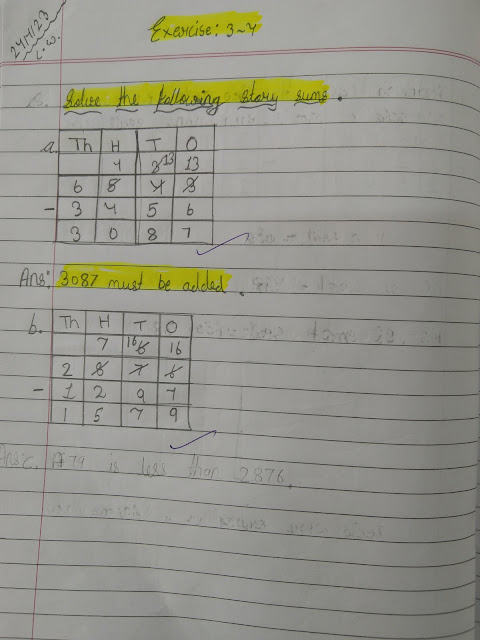 24/1/23
C.W.
Exercise: 3-4
Solve the following story sums.
a. Th H T O
4 3 13 13
6 5 4 3
- 3 4 5 6
3 0 8 7
Ans: 3087 must be added.
b. Th H T O
7 16 6 16
2 8 7 6
- 1 2 9 7
1 5 7 9
Ans: 1579 is less than 2876.